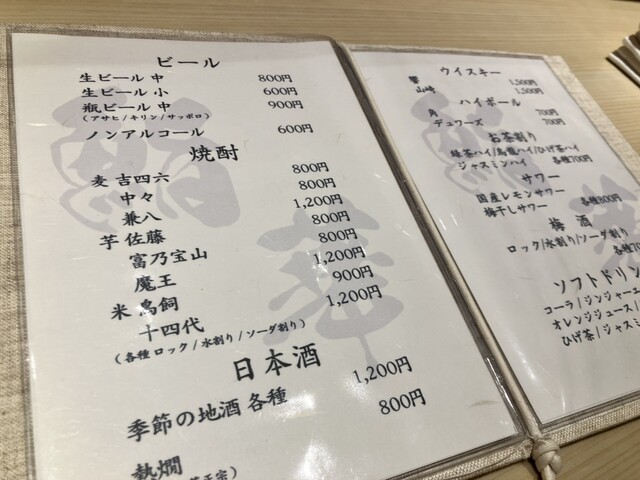 ビール
生ビール 中 800円
生ビール 小 600円
瓶ビール 中 900円
(アサヒ/キリン/サッポロ)
ノンアルコール 600円
焼酎
麦 吉四六 800円
中々 800円
兼八 1,200円
芋 佐藤 800円
富乃宝山 800円
魔王 1,200円
米 鳥飼 900円
十四代 1,200円
(各種 ロック/水割り/ソーダ割り)
日本酒
季節の地酒 各種 1,200円
熱燗 800円
ウイスキー
響 1,500円
山崎 1,500円
ハイボール
角 700円
デュワーズ 700円
お茶割り
緑茶ハイ/烏龍ハイ/ひげ茶ハイ
ジャスミンハイ 各種700円
サワー
国産レモンサワー
梅干しサワー 各種800円
梅酒
ロック/水割り/ソーダ割り
各種
ソフトドリン
コーラ/ジンジャーエ
オレンジジュース/
ひげ茶/ジャスミ